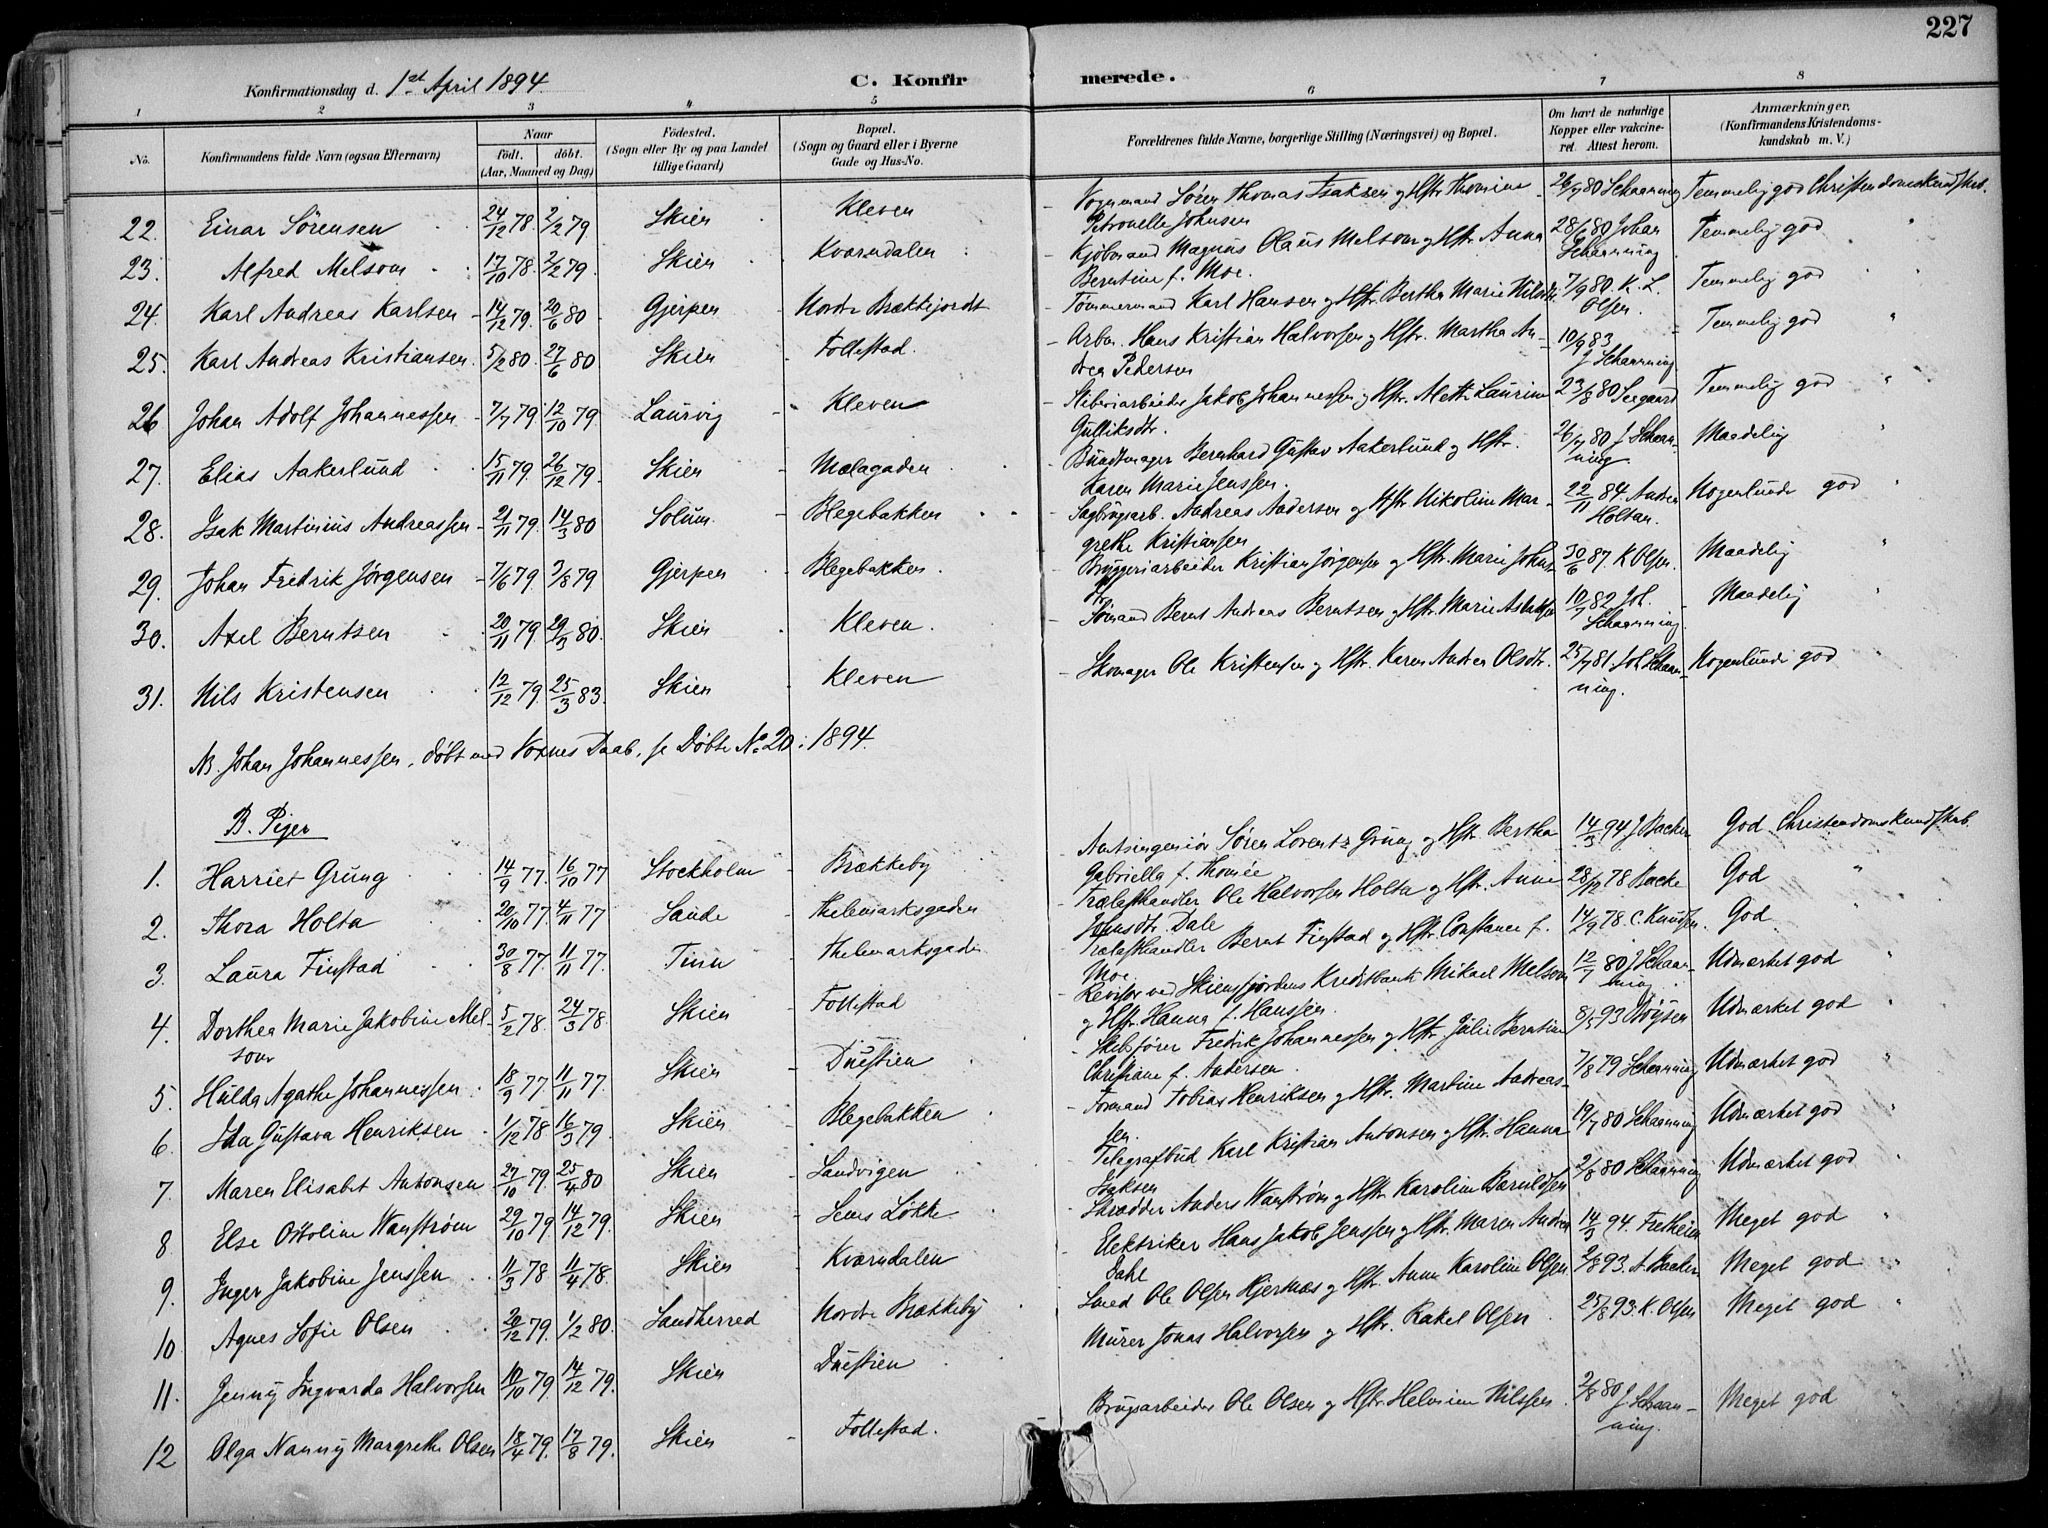 227
Konfirmationsdag d. 1st April 1894.
C. Konfirmerede.
1 2 3 4 5 6 7 8
No. Konfirmandens fulde Navn (ogsaa Efternavn) Naar født. døbt. (Aar, Maaned og Dag) Fødested. (Sogn eller By og paa Landet tillige Gaard) Bopæl. (Sogn og Gaard eller i Byerne Gade og Hus-No. Forældrenes fulde Navne, borgerlige Stilling (Næringsvei) og Bopæl. Om havt de naturlige Kopper eller vakcineret. Attest herom. Anmærkninger. (Konfirmandens Kristendomskundskab m. V.)
22. Einar Sörensen 24/12 78. 2/2 79 Skien Kleven Vognmand Sören Thomas Isaksen og Hstr Thomine Petronelle Johnsen 26/7 80 Schaanning Temmelig god Christendomskundskab.
23. Alfred Melsom 17/10 78. 2/2 79. Skien Kværndalen Kjøbmand Magnus Olaus Melsom og Hstr. Anna Berntine f. Moe. 28/6 80 Johan Schaanning Temmelig god "
24. Karl Andreas Karlsen 14/12 79. 20/6 80 Gjerpen Nordre Brækkejordet Tømmermand Karl Hansen og Hstr. Bertha Marie Nilsdtr. 7/9 80. K. L. Olsen. Temmelig god "
25. Karl Andreas Kristiansen 5/2 80. 27/6 80 Skien Follestad. Arbm. Hans Kristian Halvorsen og Hstr. Martha Andrea Pedersen 10/9 83 J Schaanning Temmelig god "
26 Johan Adolf Johannessen 7/7 79. 12/10 79 Laurvig Kleven Sliberiarbeider Jakob Johannessen og Hstr. Alette Laurine Gulliksdtr. 23/8 80 Seegaard Temmelig god "
27. Elias Aakerlund 15/11 79. 26/12 79. Skien Mælagaden Bundtmager Bernhard Gustav Aakerlund og Hstr. Karen Marie Jenssen. 26/7 80 J Schaanning. Maadelig "
28. Isak Martinius Andreassen 21/11 79. 14/3 80 Solum Blegebakken Sagbrugsarb. Andreas Andersen og Hstr Nikoline Margrethe Kristiansen 22/11 84. Andrea Holtan. Nogenlunde god "
29. Johan Fredrik Jørgensen 7/6 79 3/8 79 Gjerpen Blegebakken. Bryggeriarbeider Kristian Jørgensen og Hstr. Marie Johnsdtr 30/6 87. K Olsen. Maadelig "
30. Axel Berntsen 20/11 79. 29/3 80. Skien Kleven. Sømand Bernt Andreas Berntsen og Hstr. Marie Aslaksen 10/7 82 Joh. Schaanning. Maadelig "
31. Nils Kristensen 12/12 79. 25/3 83. Skien Kleven Skomager Ole Kristensen og Hstr. Karen Andrea Olsdtr. 25/7 81. Joh Schaanning. Nogenlunde god "
NB. Johan Johannessen, døbt med Voxnes Daab, se Døbte No 20 i 1894.
B. Piger
1. Harriet Grung 14/9 77. 16/10 77 Stockholm Brækkeby Amtsingeniør Sören Lorentz Grung og Hstr. Bertha Gabriella f. Thomée 14/3 94 J Backer God Christendomskundskab.
2. Thora Holta 20/10 77. 4/11 77 Sande Thelemarksgaden Trælasthandler Ole Halvorsen Holta og Hstr. Anne Johnsdtr. Dale 28/12 78 Backe God "
3. Laura Finstad 30/8 77. 11/11 77. Tinn Thelemarksgaden Trælasthandler Bernt Finstad og Hstr. Constance f. Moe 14/9 78 C. Knudsen. God "
4. Dorthea Marie Jakobine Melsom 5/2 78. 24/3 78. Skien Follestad Revisor ved Skiensfjordens Kreditbank Mikael Melsom og Hstr. Hanna f. Hanssen. 12/7 80 J Schaanning Udmærket god "
5. Hulda Agathe Johannessen 18/9 77. 11/11 77. Skien Duestien Skibsfører Fredrik Johannessen og Hstr. Julie Berntine Christiane f. Andersen. 8/5 93 Bøysen Udmærket god "
6. Ida Gustava Henriksen 1/12 78 16/3 79. Skien Blegebakken Formand Tobias Henriksen og Hstr. Martine Andreassen. 7/8 79 Schaanning Udmærket god "
7. Maren Elisabet Antonsen 27/10 79. 25/4 80 Skien Landvigen Telegrafbud Karl Kristian Antonsen og Hstr. Hanna Isaksen 19/7 80 Schaanning Udmærket god "
8 Else Ottoline Wanstrøm 29/10 79. 14/12 79. Skien Lens Løkke Skrædder Anders Wanstrøm og Hstr Karoline Barnildsen 2/8 80 Schaanning Udmærket god "
9. Inger Jakobine Jenssen 11/3 78 11/4 78. Skien Kværndalen Elektriker Hans Jakob Jenssen og Hstr. Maren Andrea Dahl 14/3 94. Fretheim Meget god "
10 Agnes Sofie Olsen 20/12 79. 1/2 80. Sandherred Nordre Brækkeby Smed Ole Olsen Hjernæs og Hstr. Anne Karoline Olsen 2/8 93. A. Backer Meget god "
11. Jenny Ingvarda Halvorsen 10/10 79. 14/12 79. Skien Duestien Murer Jonas Halvorsen og Hstr. Rakel Olsen 25/8 93. K. Olsen Meget god "
12 Olga Nanny Margrethe Olsen 18/4 79. 17/8 79. Skien Follestad. Brugsarbeider Ole Olsen og Hstr. Helvine Nilssen. 2/8 80 J Schaanning. Meget god